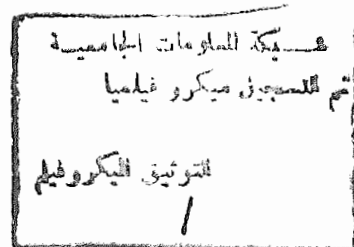 شبكة المعلومات الجامعية
تم التسجيل ميكرو فيلميا
التوثيق الميكروفيلم
/